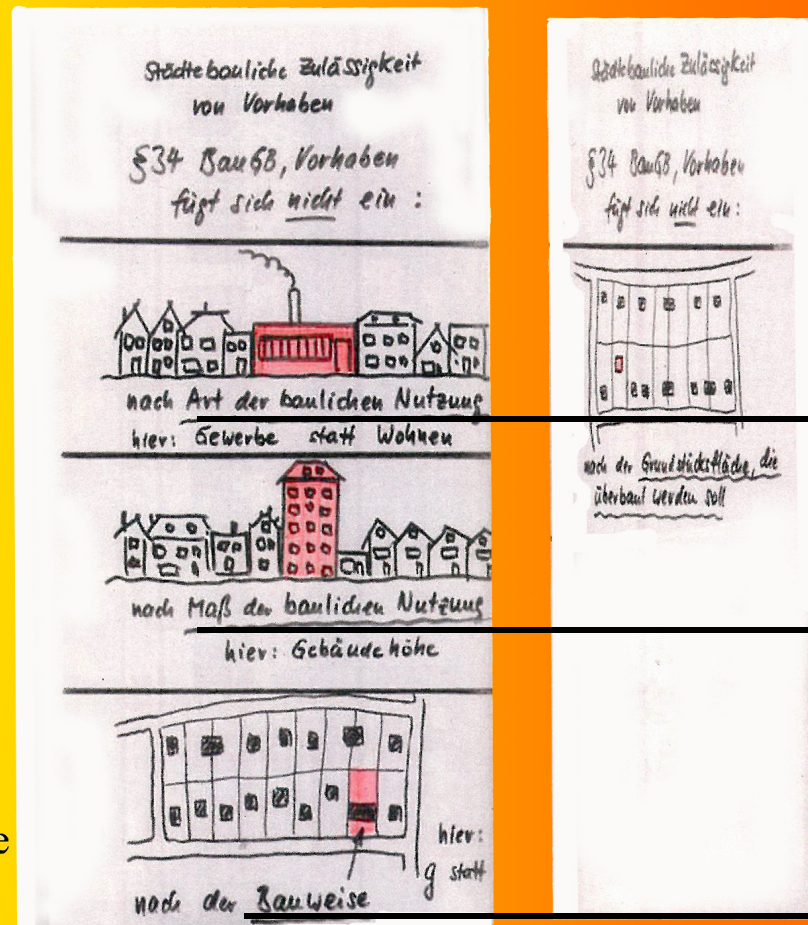 Städtebauliche Zulässigkeit
von Vorhaben
§34 BauGB, Vorhaben
fügt sich nicht ein :
nach Art der baulichen Nutzung
hier: Gewerbe statt Wohnen
nach Maß der baulichen Nutzung
hier: Gebäudehöhe
hier:
g statt
nach der Bauweise
e
Städtebauliche Zulässigkeit
von Vorhaben
§34 BauGB, Vorhaben
fügt sich nicht ein :
nach der Grundstücksfläche, die
überbaut werden soll